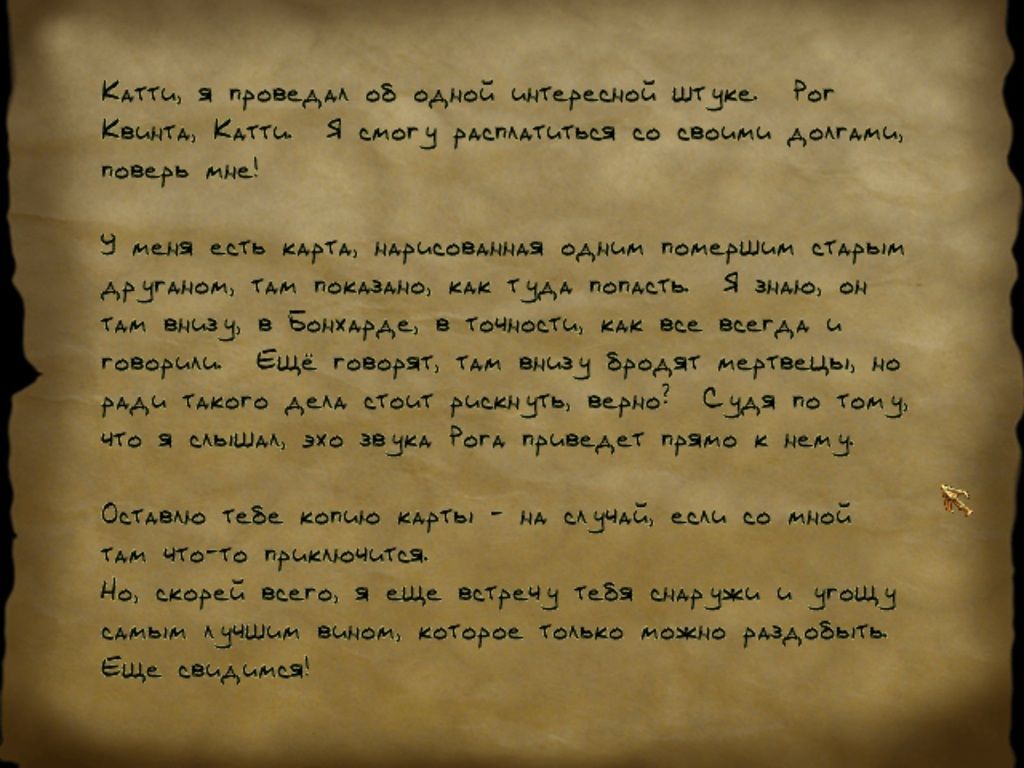 Катти, я проведал об одной интересной штуке. Рог
Квинта, Катти. Я смогу расплатиться со своими долгами,
поверь мне!
У меня есть карта, нарисованная одним помершим старым
друганом, там показано, как туда попасть. Я знаю, он
там внизу, в Бонхарде, в точности, как все всегда и
говорили. Ещё говорят, там внизу бродят мертвецы, но
ради такого дела стоит рискнуть, верно? Судя по тому,
что я слышал, эхо звука Рога приведет прямо к нему.
Оставлю тебе копию карты - на случай, если со мной
там что-то приключится.
Но, скорей всего, я еще встречу тебя снаружи и угощу
самым лучшим вином, которое только можно раздобыть.
Еще свидимся!